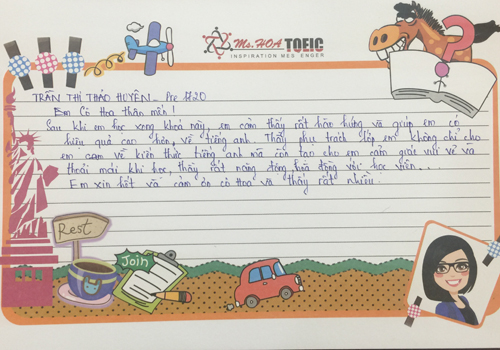 Ms.HOA TOEIC
INSPIRATION MESSENGER
TRẦN THỊ THẢO HUYỀN _ Pre 1720
Em Cô Hoa thân mến!
Sau khi em học xong khoá này em cảm thấy rất hào hứng và giúp em có
hiệu quả cao hơn, về tiếng anh. Thầy phụ trách lớp em không chỉ cho
em cảm về kiến thức tiếng anh mà còn tạo cho em cảm giác vui vẻ và
thoải mái khi học, thầy rất năng động, hoà đồng với học viên...
Em xin hết và cảm ơn cô Hoa và thầy rất nhiều.
Rest
Join
?